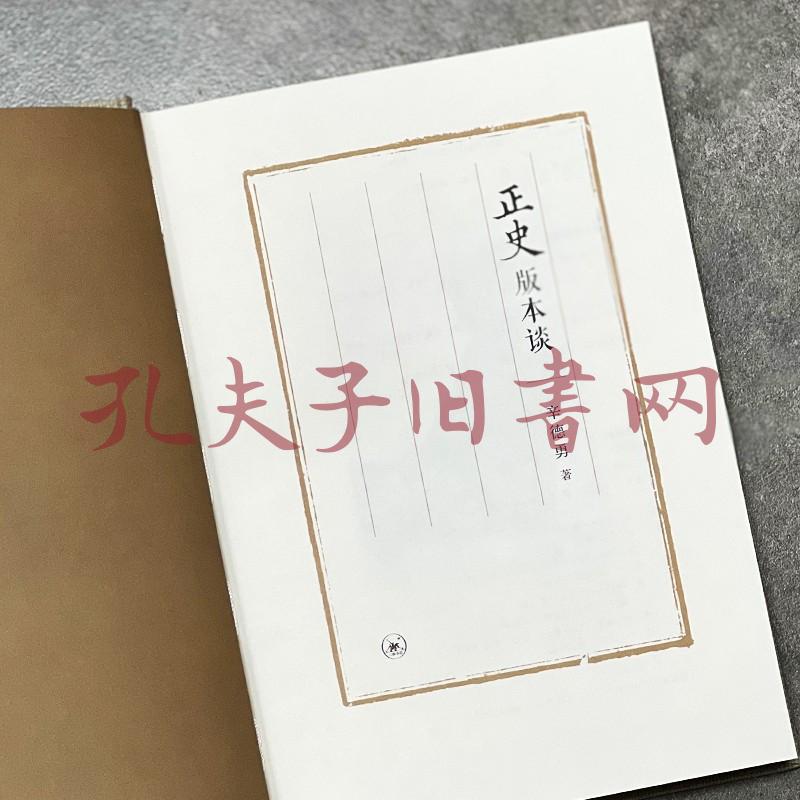 正史
版本谈
辛德勇 著
孔夫子旧書网